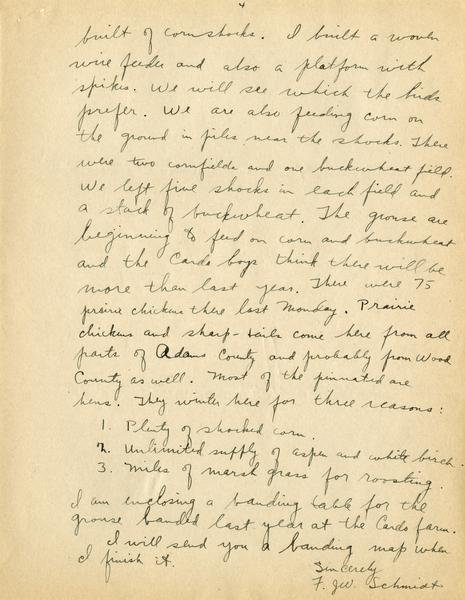 4
built of cornshocks. I built a woven
wire feeder and also a platform with
spikes. We will see which the birds
prefer. We are also feeding corn on
the ground in piles near the shocks. There
were two cornfields and one buckwheat field.
We left five shocks in each field and
a stack of buckwheat. The grouse are
beginning to feed on corn and buckwheat
and the Cards boys think there will be
more than last year. There were 75
prairie chickens there last Monday. Prairie
chickens and sharp-tails come here from all
parts of Adams County and probably from Wood
County as well. Most of the pinnated are
hens. They winter here for three reasons:
1. Plenty of shocked corn.
2. Unlimited supply of aspen and white birch.
3. Miles of marsh grass for roosting.
I am enclosing a banding table for the
grouse banded last year at the Cards farm.
I will send you a banding map when
I finish it.
Sincerely
F. J.W. Schmidt